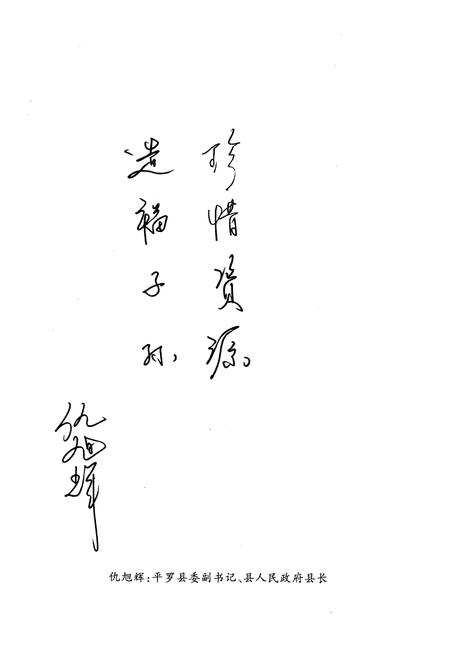 珍惜资源、
造福子孙、
仇旭辉
仇旭辉：平罗县委副书记、县人民政府县长